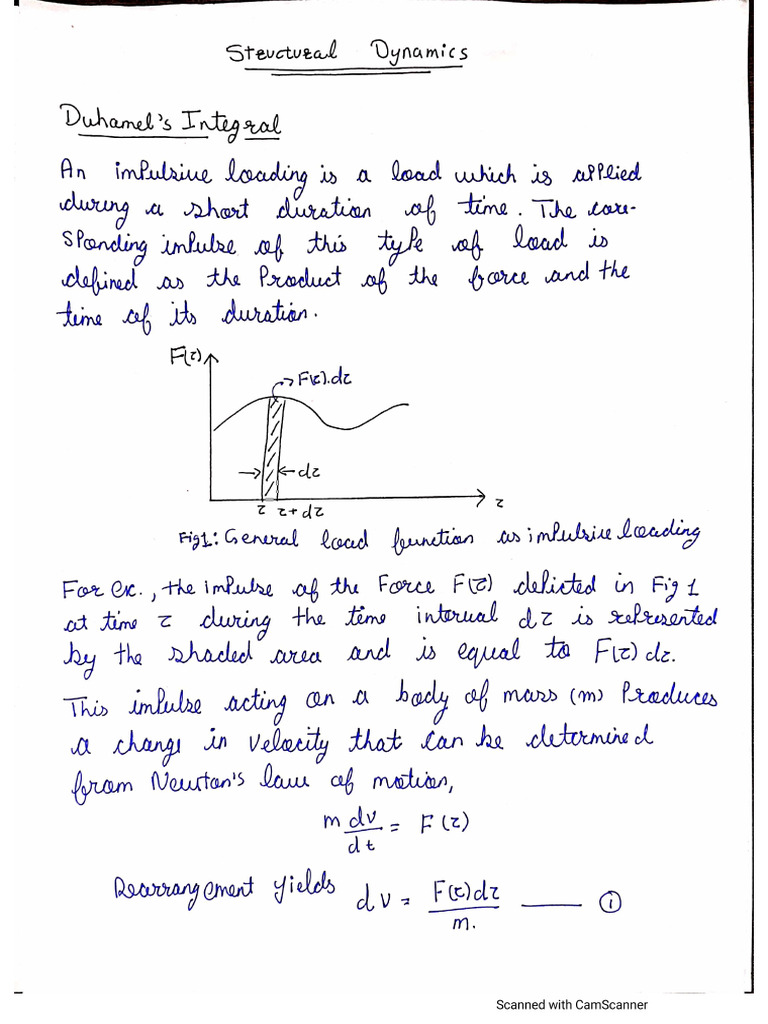 Structural Dynamics
Duhamel's Integral
An impulsive loading is a load which is applied
during a short duration of time. The corre-
sponding impulse of this type of load is
defined as the Product of the force and the
time of its duration.
F(τ)
F(τ).dτ
dτ
τ τ+dτ
τ
Fig1: General load function as impulsive loading
For ex., the impulse of the Force F(τ) depicted in Fig 1
at time τ during the time interval dτ is represented
by the shaded area and is equal to F(τ)dτ.
This impulse acting on a body of mass (m) Produces
a change in velocity that can be determined
from Newton's law of motion,
m dv/dt = F(τ)
Rearrangement yields dv = F(τ)dτ/m. —— ①
Scanned with CamScanner